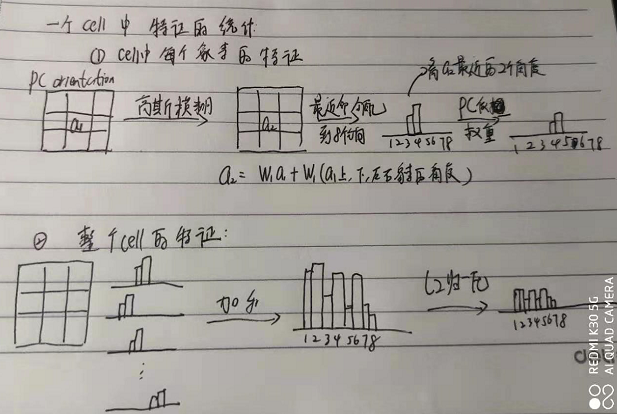 一个cell中 特征的统计
① cell中每个象素的特征
PC orientation
a₁
高斯模糊
a₂
最近邻分配
到8方向
离a₂最近的2个角度
1 2 3 4 5 6 7 8
PC
权重
1 2 3 4 5 6 7 8
a₂ = W₁a₁ + W₁(a₁上,下,左右角度)
② 整个cell的特征:
加和
1 2 3 4 5 6 7 8
L2归一化
1 2 3 4 5 6 7 8
REDMI K30 5G
AI QUAD CAMERA